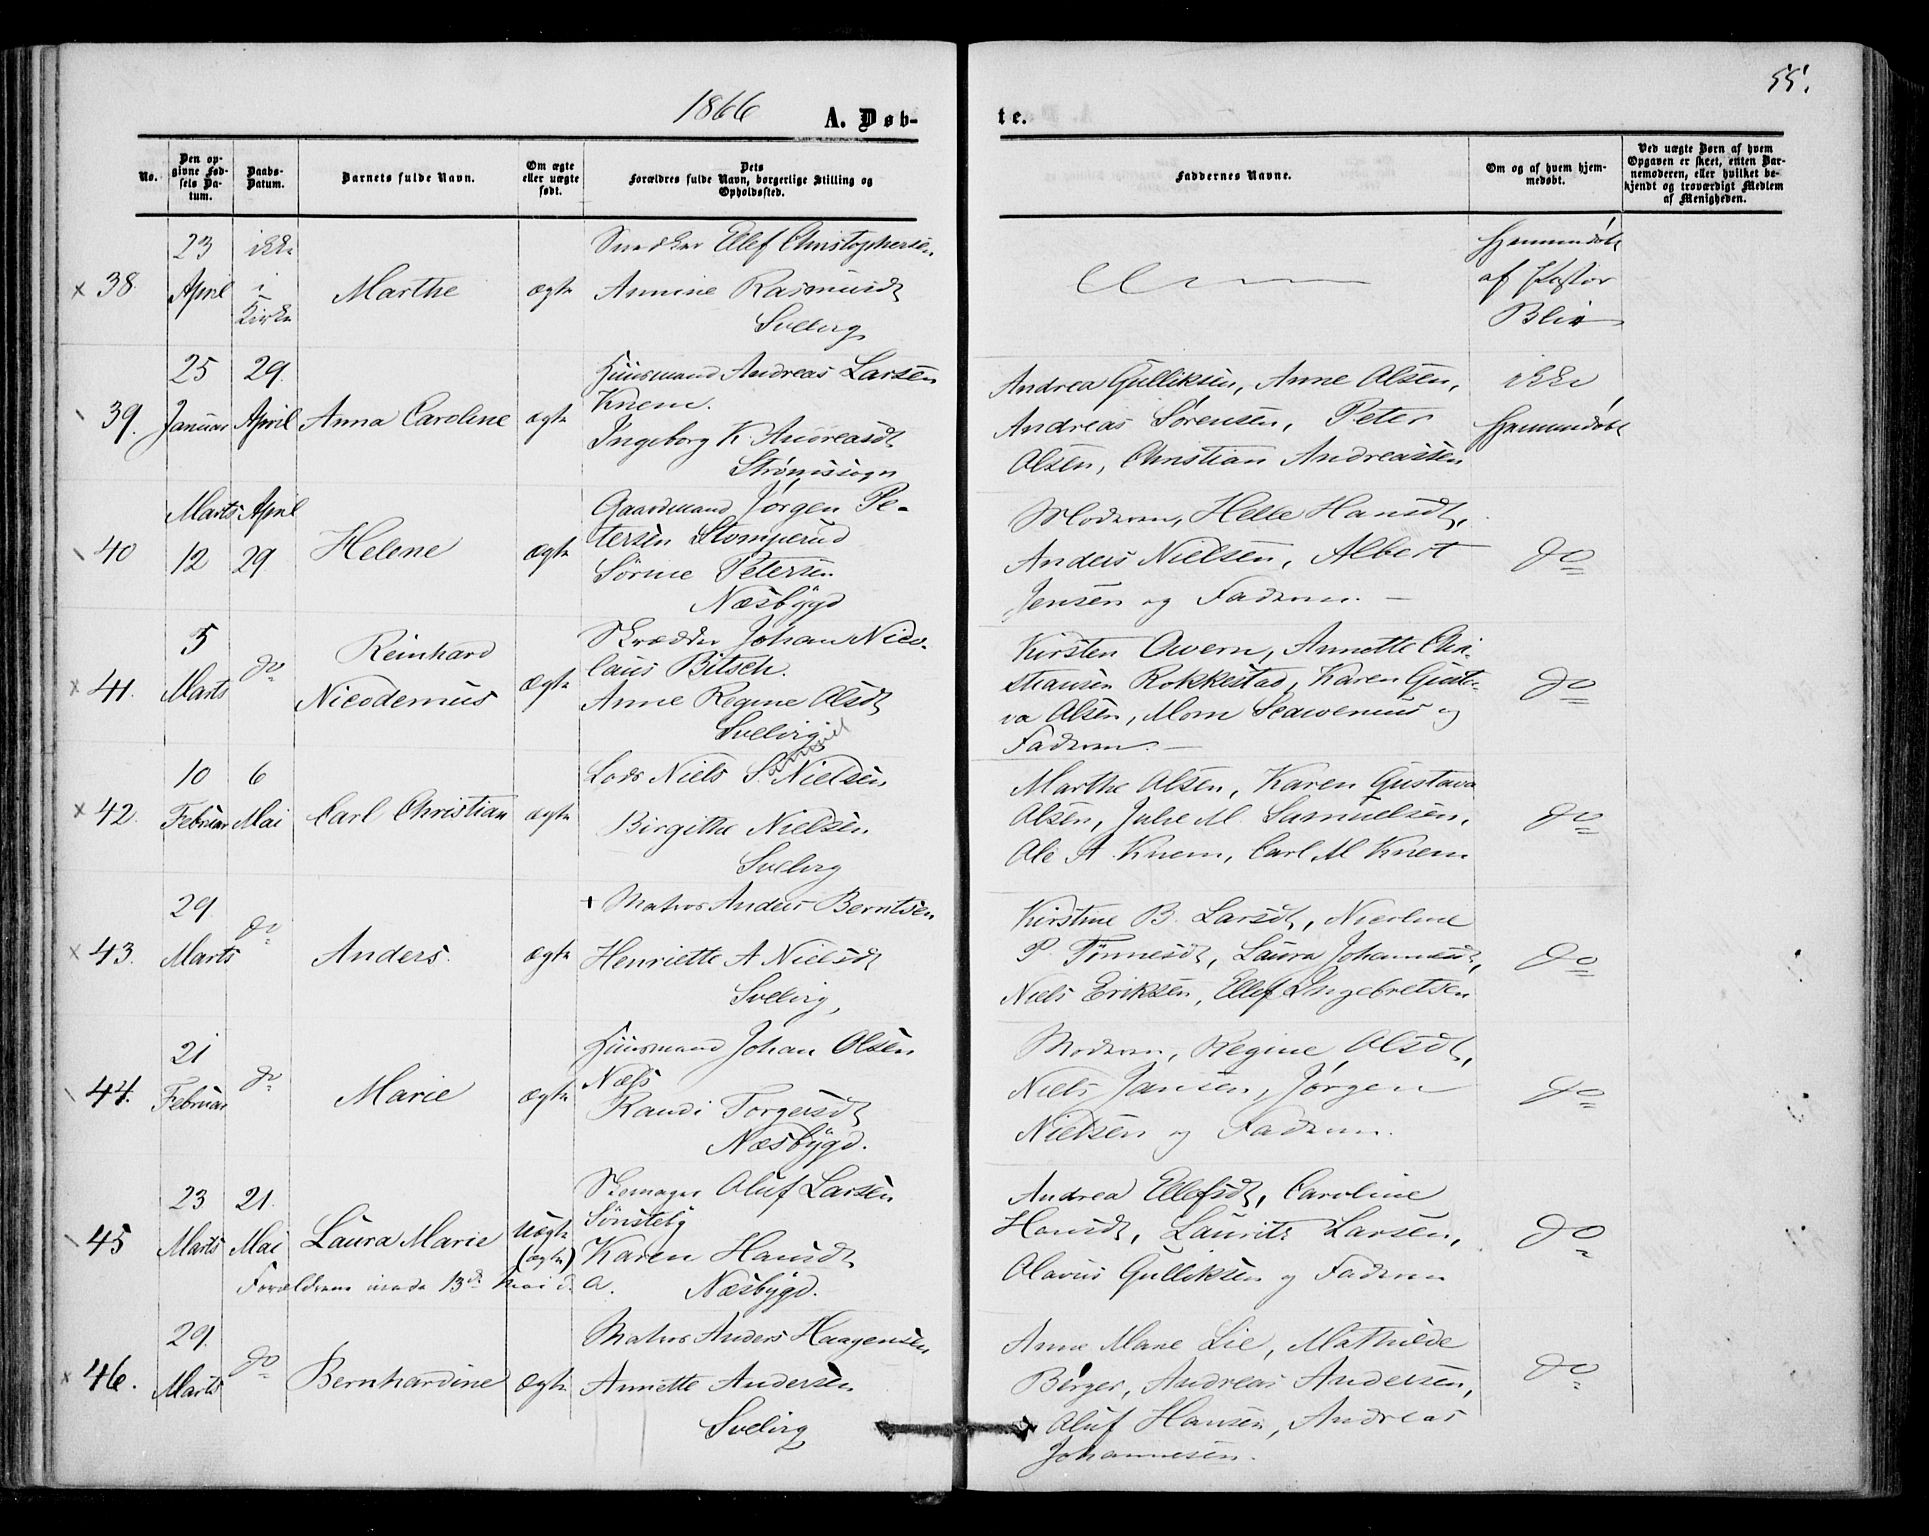 55.
1866 A. Døbte.
No.
Den opgivne Fødsels Datum.
Daabs-Datum.
Barnets fulde Navn.
Om ægte eller uægte født.
Dets Forældres fulde Navn, borgerlige Stilling og Opholdssted.
Faddernes Navne.
Om og af hvem hjemmedøbt.
Ved uægte Børn af hvem Opgaven er skeet, enten Barnemoderen, eller hvilket bekjendt og troværdigt Medlem af Menigheden.
x 38.
23 April
ikke i Kirke
Marthe
ægte
Snedker Ellef Christophersen
Annine Rasmusdt
Svelvig
hjemmedøbt
af Pastor
Blix
39.
25 Januar
29. April
Anna Caroline
ægte
Huusmand Andreas Larsen
Knem.
Ingeborg K Andreasdt
Strømssogn
Andrea Gulliksen, Anne Olsen,
Andreas Sørensen, Peter
Olsen, Christian Andreassen
ikke
hjemmedøbt
40
Marts 12
April 29
Helene
ægte
Gaardmand Jørgen Pe-
tersen Stomperud
Sørine Petersen
Næsbÿgd
Moderen, Helle Hansdt,
Anders Nielsen, Albert
Jensen og Faderen. -
do
x 41.
5 Marts
do
Reinhard
Nicodemus
ægte
Skrædder Johan Nico-
laus Bitsch.
Anne Regine Olsdt
Svelvig
Kirsten Owern, Annette Chri-
stiansen Rokkestad, Karen Gusta-
va Olsen, Mom Scavenius og
Faderen. -
do
x 42.
10 Februar
6 Mai
Carl Christian
ægte
Lods Niels S. Nielsen
Birgithe Nielsen
Svelvig
Marthe Olsen, Karen Gustava
Olsen, Julie M Samuelsen,
Ole A Knem, Carl M Knem
do
x 43.
29. Marts
do
Anders.
ægte
+ Matros Anders Berntsen
Henriette A Nielsdt
Svelvig,
Kirstine B. Larsdt, Nicoline
P. Tønnesdt, Laura Johannesdt,
Niels Eriksen, Ellef Engebretsen
do
44.
21 Februar
do
Marie
ægte
Huusmand Johan Olsen
Næss
Randi Torgersdt
Næsbÿgd.
Moderen, Regine Olsdt,
Niels Jansen, Jørgen
Nielsen og Faderen.
do
45
23 Marts
21. Mai
Laura Marie
uægte
(ægte)
Forældrene viede 13de Mai d. a.
Skomager Oluf Larsen
Sønsteby
Karen Hansdt
Næsbÿgd.
Andrea Ellefsdt, Caroline
Hansdt, Laurits Larsen,
Olavus Gulliksen og Faderen
do
x 46.
29. Marts
do
Bernhardine
ægte
Matros Anders Haagensen
Annette Andersen
Svelvig
Anne Marie Lie, Mathilde
Berger, Andreas Andersen,
Oluf Hansen, Andreas
Johannesen.
do